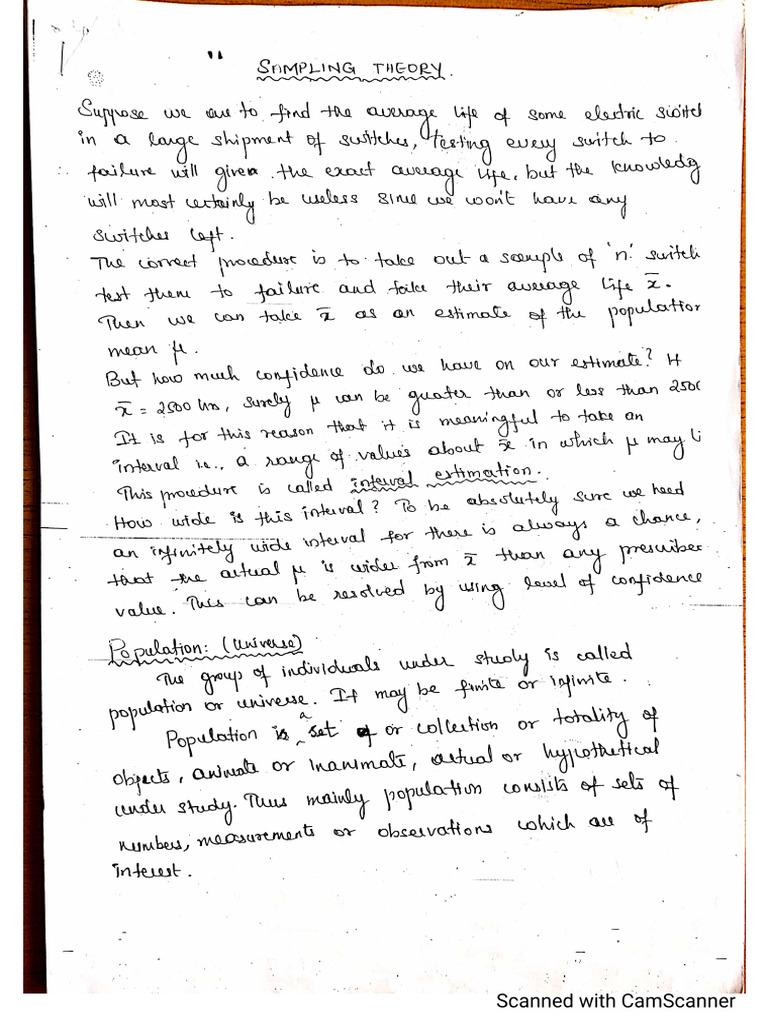 SAMPLING THEORY.
Suppose we are to find the average life of some electric switch
in a large shipment of switches, testing every switch to
failure will given the exact average life, but the knowledg
will most certainly be useless since we won't have any
switches left.
The correct procedure is to take out a sample of 'n' switch
test them to failure and take their average life x̄.
Then we can take x̄ as an estimate of the population
mean μ.
But how much confidence do we have on our estimate? If
x̄ = 2500 hrs, surely μ can be greater than or less than 2500
It is for this reason that it is meaningful to take an
interval i.e., a range of values about x̄ in which μ may li
This procedure is called interval estimation.
How wide is this interval? To be absolutely sure we need
an infinitely wide interval for there is always a chance,
that the actual μ is wider from x̄ than any prescribe
value. This can be resolved by using level of confidence
Population: (Universe)
The group of individuals under study is called
population or universe. It may be finite or infinite.
Population is a set of or collection or totality of
objects, animate or inanimate, actual or hypothetical
under study. Thus mainly population consists of sets of
numbers, measurements or observations which are of
interest.
Scanned with CamScanner